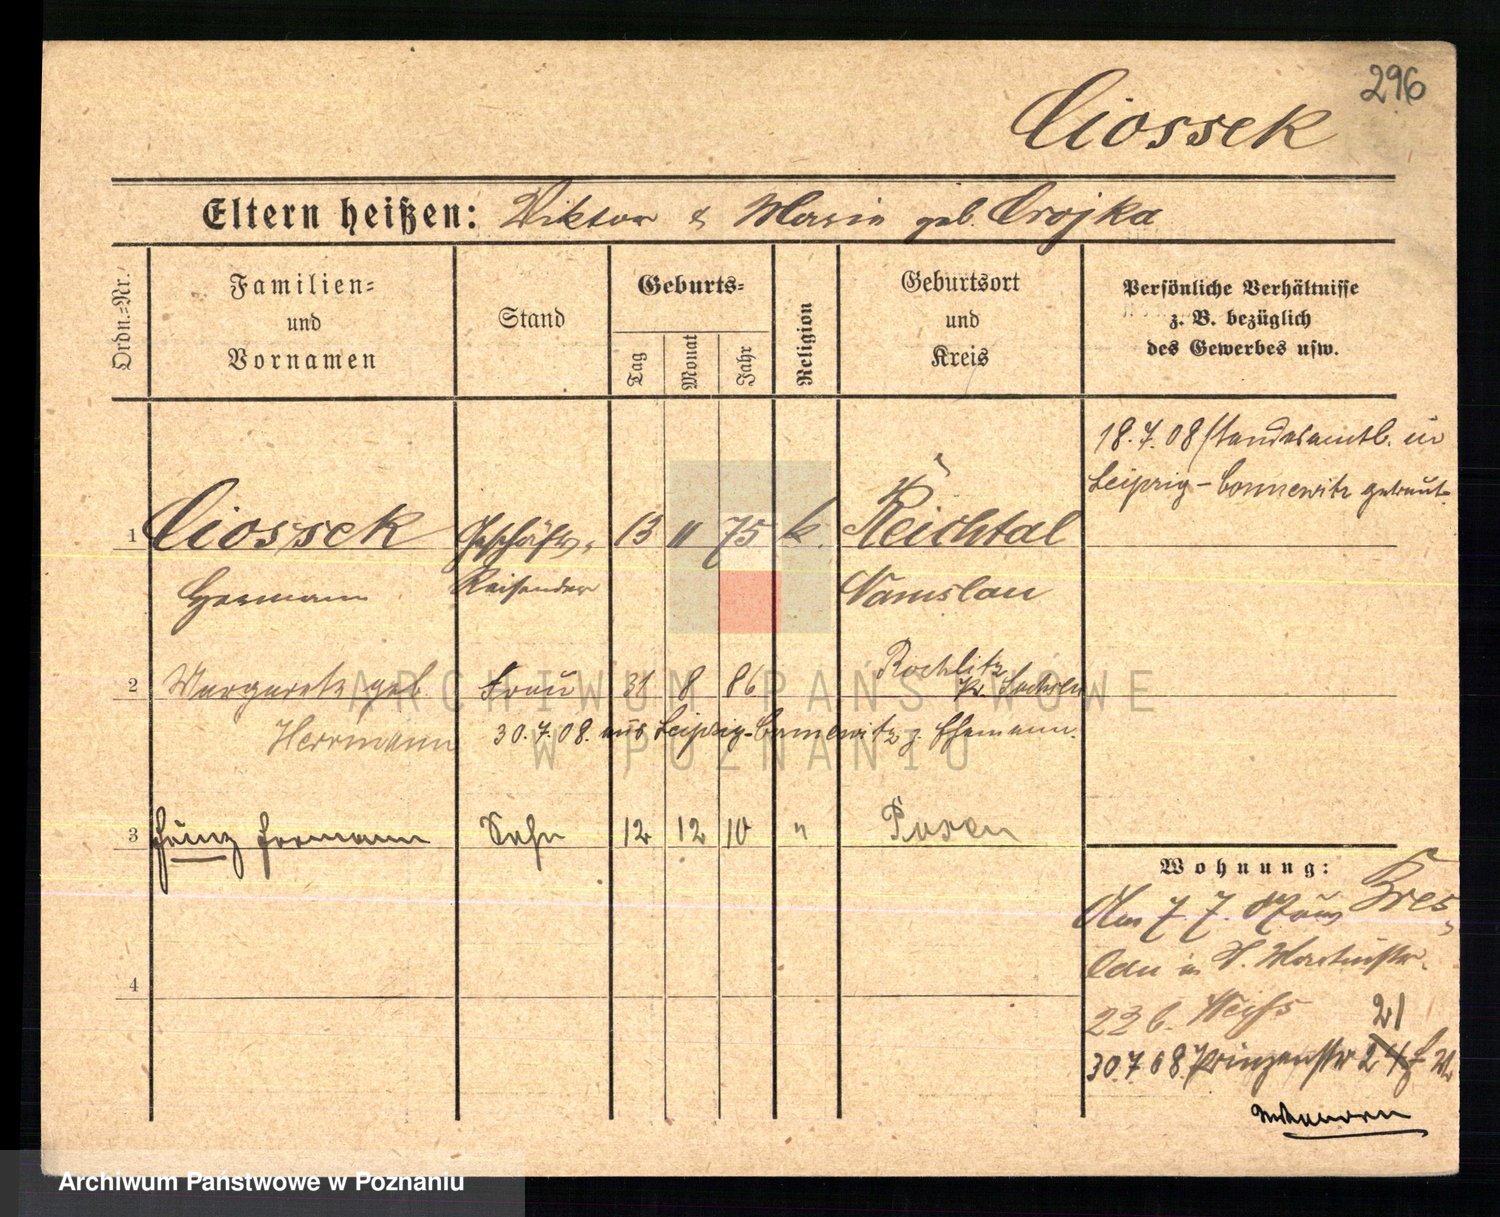 296
Ciossek
Eltern heißen: Viktor & Maria geb. Crojka
Ordn.-Nr.
Familien-
und
Vornamen
Stand
Geburts-
Tag
Monat
Jahr
Religion
Geburtsort
und
Kreis
Persönliche Verhältnisse
z. B. bezüglich
des Gewerbes usw.
18.7.08 standesamtl. in
Leipzig-Connewitz getraut.
1 Ciossek Geschäfts- 13 " 75 k. Reichtal
Hermann Reisender Namslau
2 Margarete geb Frau 31 8 86 Rochlitz
Kr. Sachsen
Herrmann 30.7.08. aus Leipzig-Connewitz z. Ehemann.
3 Heinz Hermann Sohn 12 12 10 " Posen
Wohnung:
Am 7 7 07 aus Bres-
lau in St. Martinstr.
22 b. Weiss
21
30.7.08. Prinzenstr 24
4
ARCHIWUM PAŃSTWOWE
W POZNANIU
Archiwum Państwowe w Poznaniu